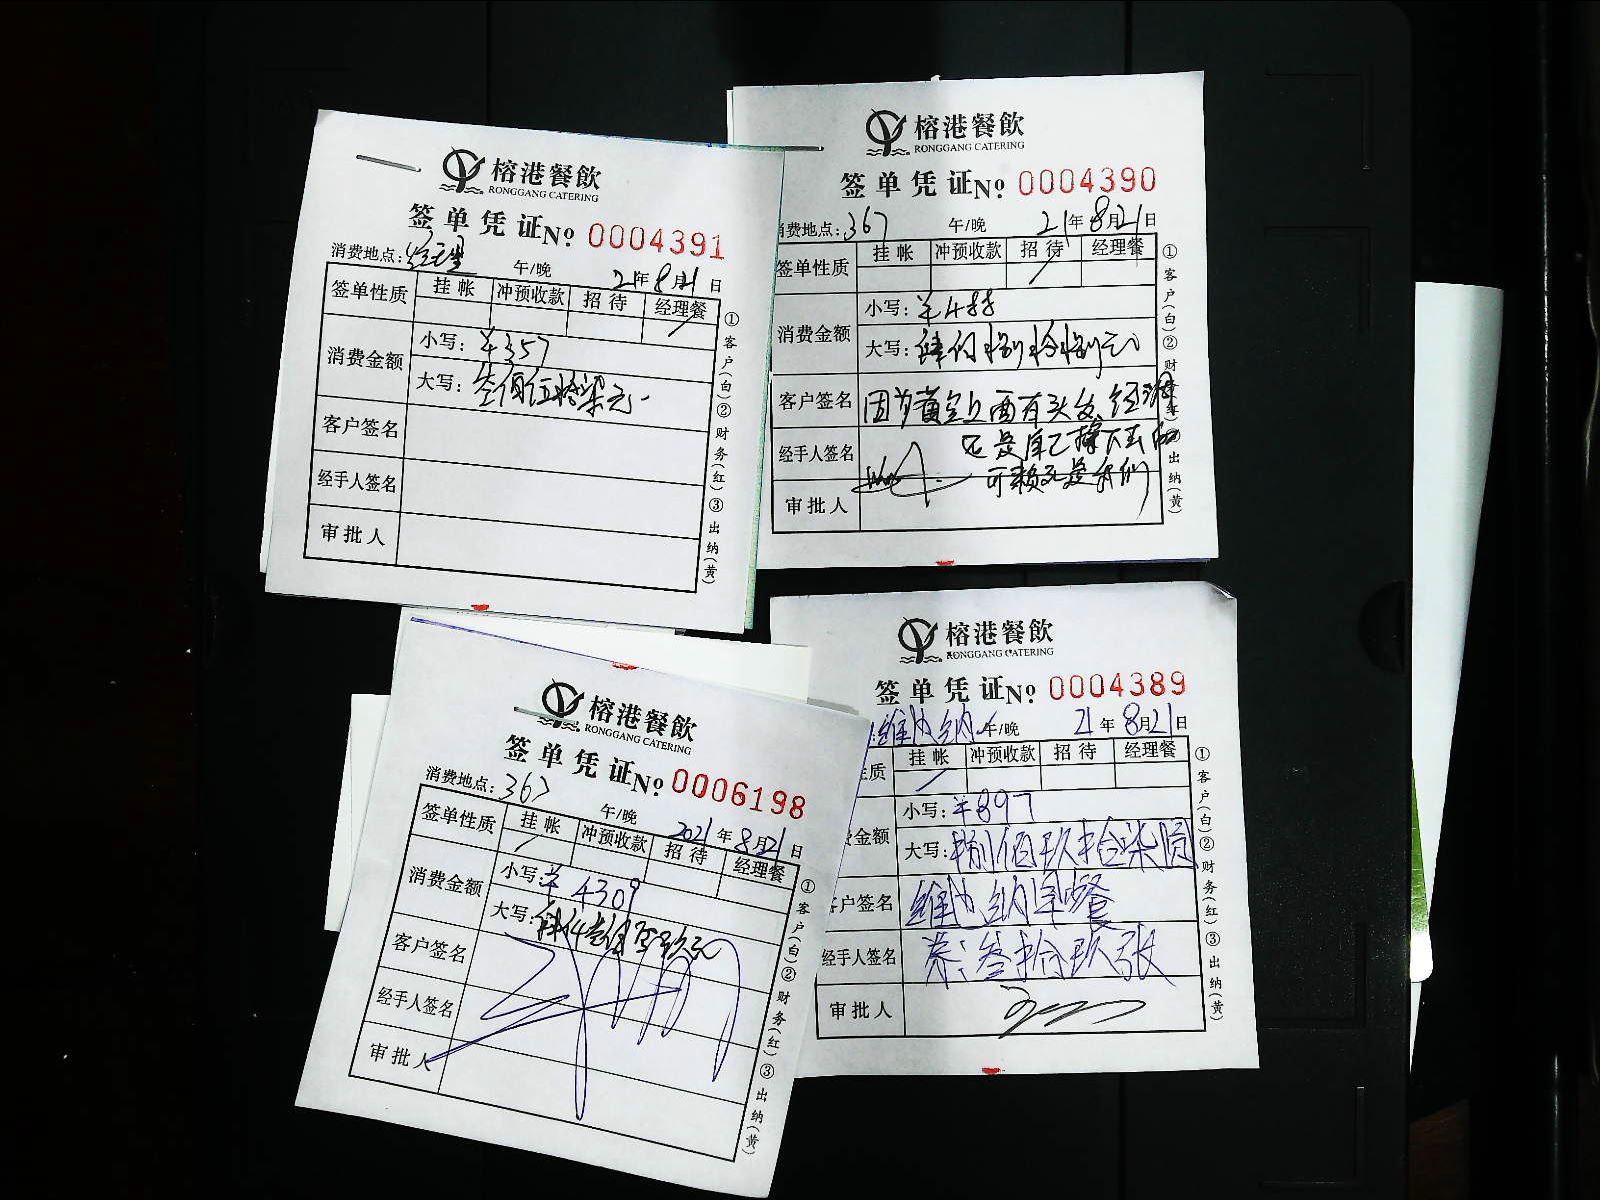 榕港餐飲
RONGGANG CATERING
签单凭证№ 0004391
消费地点:
午/晚 21年8月21日
签单性质 挂帐 冲预收款 招待 经理餐
消费金额 小写:¥357
大写:叁佰伍拾柒元
客户签名
经手人签名
审批人
①客户(白)②财务(红)③出纳(黄)
榕港餐飲
RONGGANG CATERING
签单凭证№ 0004390
消费地点:367 午/晚 21年8月21日
签单性质 挂帐 冲预收款 招待 经理餐
消费金额 小写:¥488
大写:肆佰捌拾捌元
客户签名 因为 上面有头发,经
经手人签名 不是
可赖 是我们
审批人
①客户(白)②财务(红)③出纳(黄)
榕港餐飲
RONGGANG CATERING
签单凭证№ 0006198
消费地点:367
午/晚 2021年8月21日
签单性质 挂帐 冲预收款 招待 经理餐
消费金额 小写:¥4309
大写:肆仟叁佰零玖元
客户签名
经手人签名
审批人
①客户(白)②财务(红)③出纳(黄)
榕港餐飲
RONGGANG CATERING
签单凭证№ 0004389
:维也纳 午/晚 21年8月21日
性质 挂帐 冲预收款 招待 经理餐
金额 小写:¥897
大写:捌佰玖拾柒圆
客户签名 维也纳早餐
经手人签名 券:叁拾玖张
审批人
①客户(白)②财务(红)③出纳(黄)